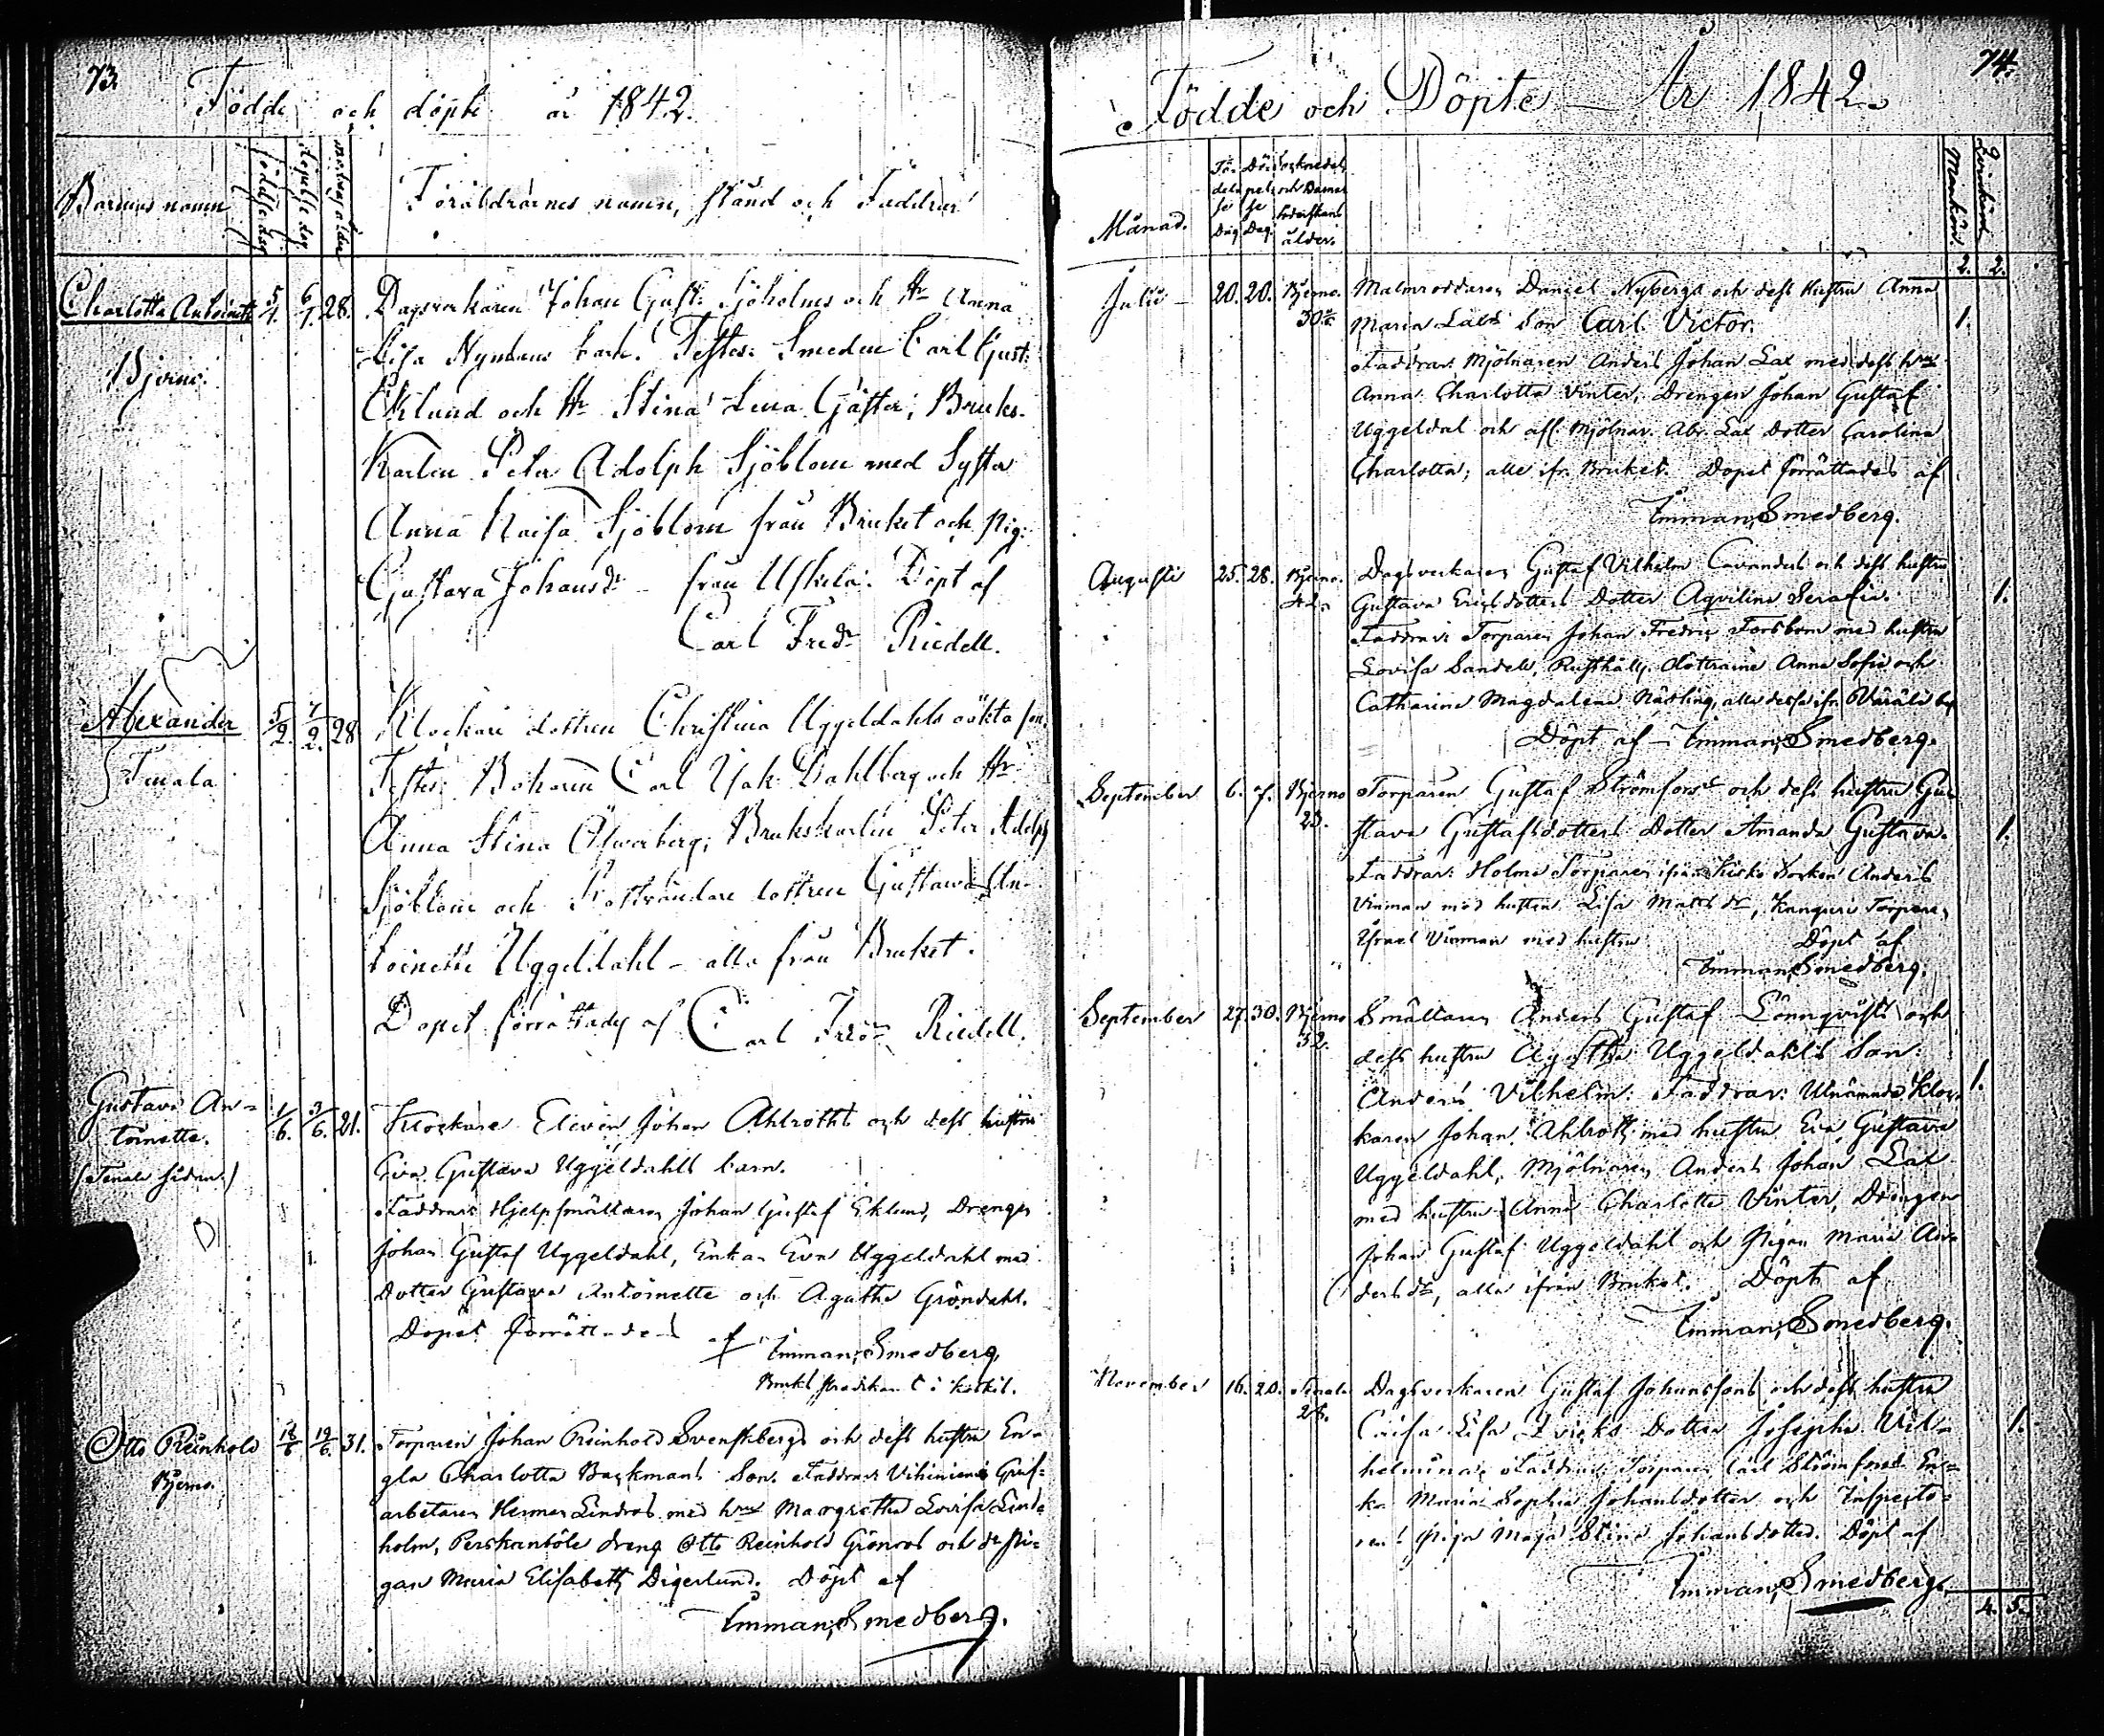 73.
Födde och döpte år 1842.
Barnens namn
Födelse dag
Döpelse dag
Moderns ålder
Föräldrarnes namn, stånd och Faddrar
Charlotta Antoinette
5/1. 6/1. 28.
Bjerno.
Dagsverkaren Johan Gust: Sjöholms och Hr Anna
Lisa Nymans barn. Testes: Smeden Carl Gust:
Eklund och Hr Stina Lena Gäster; Bruks-
Karlen Peter Adolph Sjöblom med Syster
Anna Kaisa Sjöblom från Bruket och Pig:
Gustava Johansdr från Uskela. Döpt af
Carl Fredr Riedell.
Alexander
5/2. 7/2. 28
Tenala
Klockare dottren Christina Uggeldahls oäkta son.
Testes: Bokaren Carl Jak: Dahlberg och Hr
Anna Stina Öfverberg; Brukskarlen Peter Adolph
Sjöblom och dottren Gustawa An-
toinette Uggeldahl – alla från Bruket.
Dopet förrättades af Carl Fredr Riedell.
Gustava An=
toinette.
(Tenala sidan.)
1/6. 3/6. 21.
Klockare Eleven Johan Ahlroths och dess hustru
Eva Gustava Uggeldahls barn.
Faddrar: Hjelpsmältaren Johan Gustaf Eklund, Drengen
Johan Gustaf Uggeldahl, Enkan Eva Uggeldahl med
Dotter Gustava Antoinette och Agatha Gröndahl.
Dopet förrättades af Imman: Smedberg,
Bruks predikant i Koskis.
Otto Reinhold
Bjerno.
18/6 19/6. 31.
Torparen Johan Reinhold Svenskbergs och dess hustru En-
gla Charlotta Backmans Son. Faddrar: Vihiniemi Gruf=
arbetaren Herman Lindros med hru Margretha Lovisa Lind=
holm, Perskantöle dreng Otto Reinhold Grönroos och dr Pi=
gan Maria Elisabeth Digerlund. Döpt af
Imman: Smedberg.
74.
Födde och Döpte – År 1842.
Månad.
Fö-
delse
Dag
Dö-
pelse
Dag.
Socknedel
och Barna
föderskans
ålder.
Mankön
Qvinkön
2. 2.
Julii – 20. 20. Bjerno.
30
Malmroddaren Daniel Nybergs och dess hustru Anna
Maria Lax's Son Carl Victor. 1.
Faddrar: Mjölnaren Anders Johan Lax med dess hru
Anna Charlotta Vinter, Drengen Johan Gustaf
Uggeldal och afl. Mjölnar. Abr. Lax dotter Carolina
Charlotta; alla ifr. Bruket. Dopet förrättades af
Imman: Smedberg.
Augusti 25. 28. Bjerno.
Dagsverkaren Gustaf Vilhelm Cavanders och dess hustru
Gustava Ericsdotters Dotter Aqvilina Serafia. 1.
Faddrar: Torparen Johan Fredric Forsbom med hustru
Lovisa Sandell, Rusthåll. döttrarne Anna Sofia och
Catharina Magdalena alla dessa ifr. by
Döpt af – Imman: Smedberg.
September 6. 7. Bjerno
23.
Torparen Gustaf Strömfors och dess hustru Gu-
stava Gustafsdotters Dotter Amanda Gustava. 1.
Faddrar: Holma Torparen ifrån Kisko Socken Anders
Vinman med hustru Lisa Matts dr, Kanguri Torparen
Israel Vinman med hustru Döpt af
Imman: Smedberg.
September 27. 30. Bjerno
32.
Smältaren Anders Gustaf Lönnqvists och
dess hustru Agatha Uggeldahls Son:
Anders Vilhelm: Faddrar: Utnämnde Kloc- 1.
karen Johan Ahlroth med hustru Eva Gustava
Uggeldahl, Mjölnaren Anders Johan Lax
med hustru Anna Charlotta Vinter, Drengen
Johan Gustaf Uggeldahl och Pigan Maria An-
ders dr, alla ifrån Bruket. Döpt af
Imman: Smedberg.
November 16. 20. Tenala
28.
Dagsverkaren Gustaf Johanssons och dess hustru
Caisa Lisa Dotter Josepha Vil- 1.
helmina; Faddrar: Torparen Carl Strömfors En=
ka Maria Sophia Johansdotter och Inspecto-
rens Piga Maja Stina Johansdotter. Döpt af
Imman: Smedberg.
4. 5.